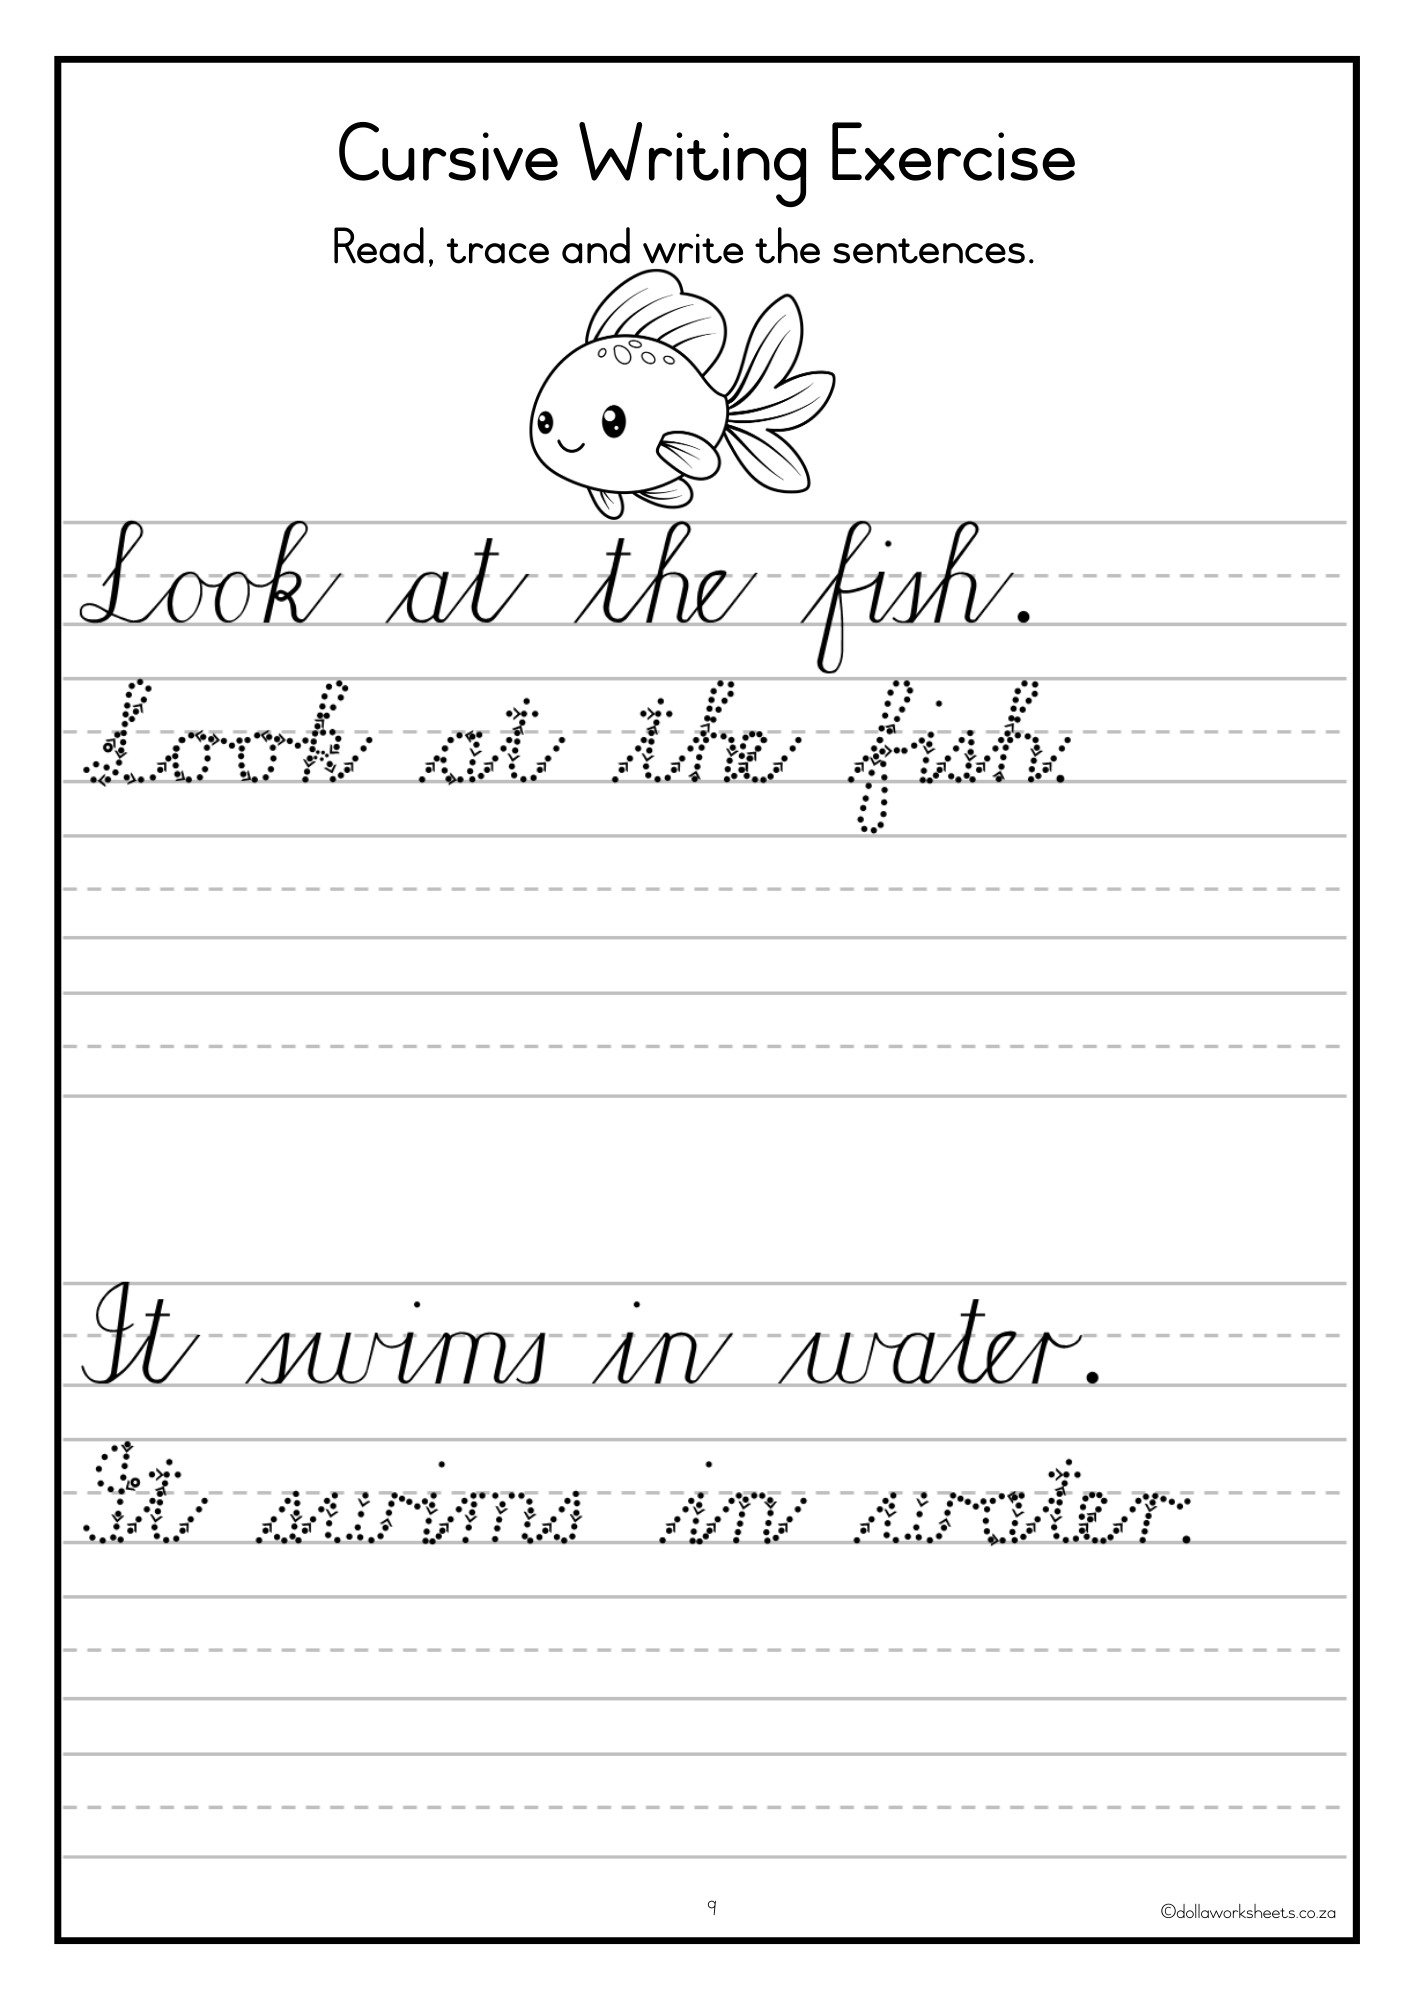 Cursive Writing Exercise
Read, trace and write the sentences.
Look at the fish.
Look at the fish.
It swims in water.
It swims in water.
9
©dollaworksheets.co.za